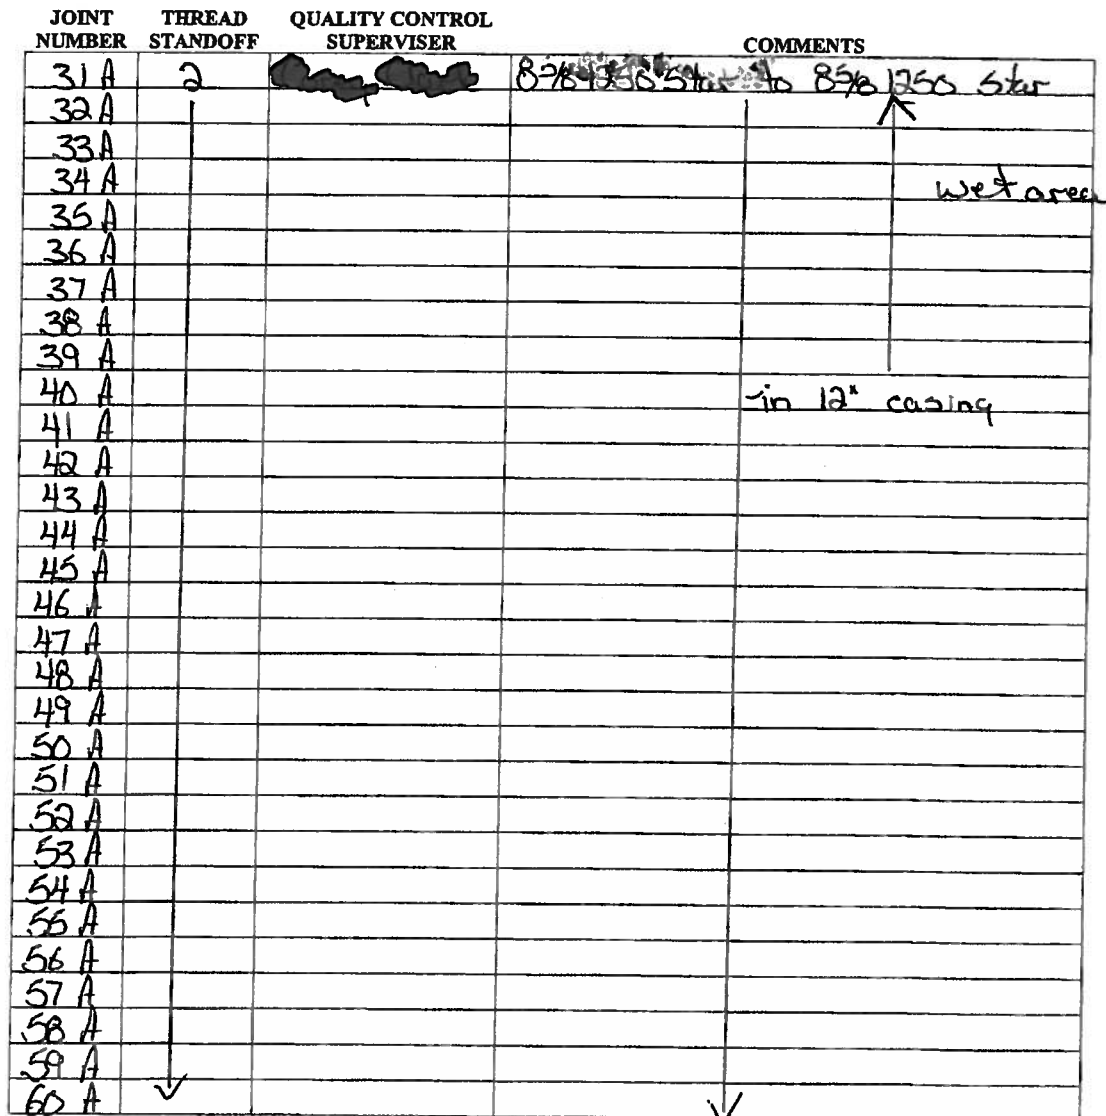 JOINT NUMBER THREAD STANDOFF QUALITY CONTROL SUPERVISER COMMENTS
31 A 2 8 5/8 1250 Star to 8 5/8 1250 Star
32 A
33 A
34 A wet area
35 A
36 A
37 A
38 A
39 A
40 A in 12" casing
41 A
42 A
43 A
44 A
45 A
46 A
47 A
48 A
49 A
50 A
51 A
52 A
53 A
54 A
55 A
56 A
57 A
58 A
59 A
60 A